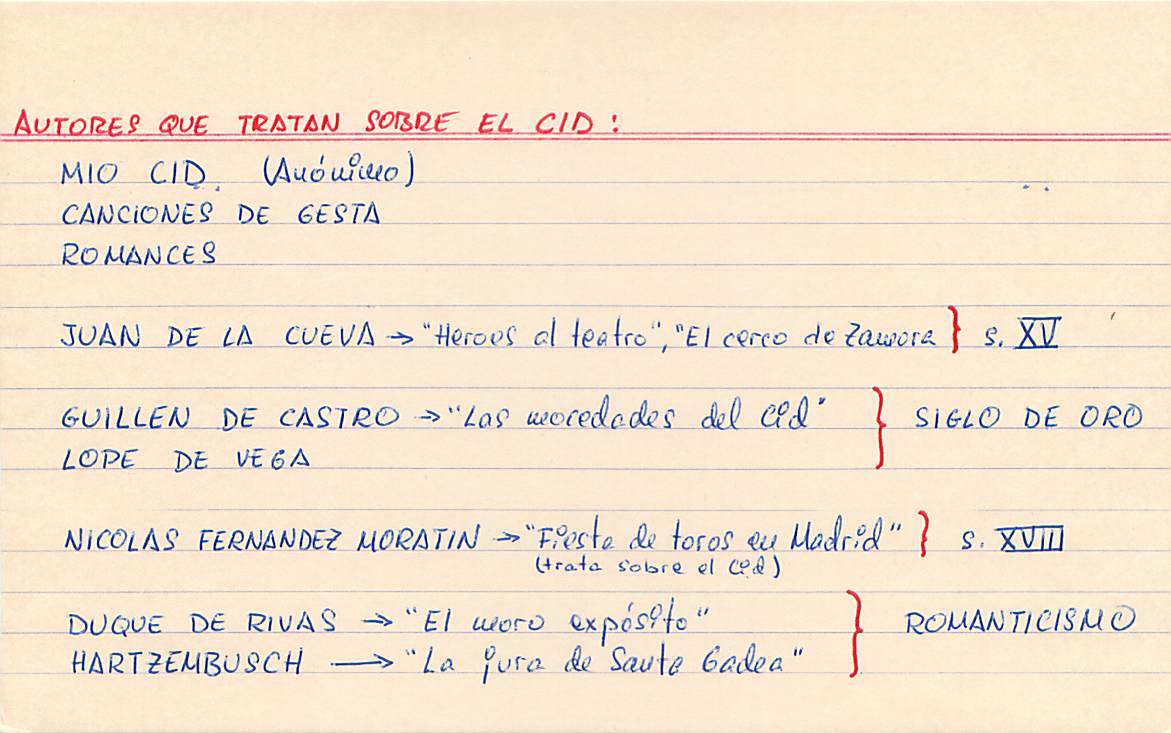 AUTORES QUE TRATAN SOBRE EL CID :
MIO CID. (Anónimo)
CANCIONES DE GESTA
ROMANCES
JUAN DE LA CUEVA → "Heroes al teatro", "El cerco de Zamora } s. XV
GUILLEN DE CASTRO → "Las mocedades del Cid" } SIGLO DE ORO
LOPE DE VEGA
NICOLAS FERNANDEZ MORATIN → "Fiesta de toros en Madrid" } s. XVIII
(trata sobre el Cid)
DUQUE DE RIVAS → "El moro expósito" } ROMANTICISMO
HARTZEMBUSCH → "La jura de Santa Gadea"